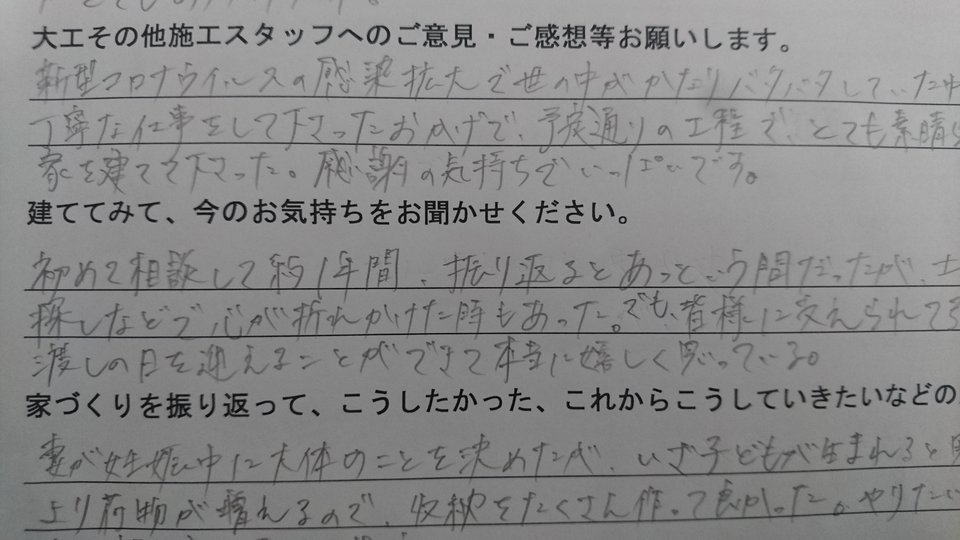 大工その他施工スタッフへのご意見・ご感想等お願いします。
新型コロナウイルスの感染拡大で世の中がかなりバタバタしていた中
丁寧な仕事をして下さったおかげで、予定通りの工程で、とても素晴ら
家を建てて下さった。感謝の気持ちでいっぱいです。
建ててみて、今のお気持ちをお聞かせください。
初めて相談して約1年間、振り返るとあっという間だったが、土
探しなどで心が折れかけた時もあった。でも、皆様に支えられて引
渡しの日を迎えることができて本当に嬉しく思っている。
家づくりを振り返って、こうしたかった、これからこうしていきたいなどの
妻が妊娠中に大体のことを決めたが、いざ子どもが生まれると思
より荷物が増えるので、収納をたくさん作って良かった。やりたい